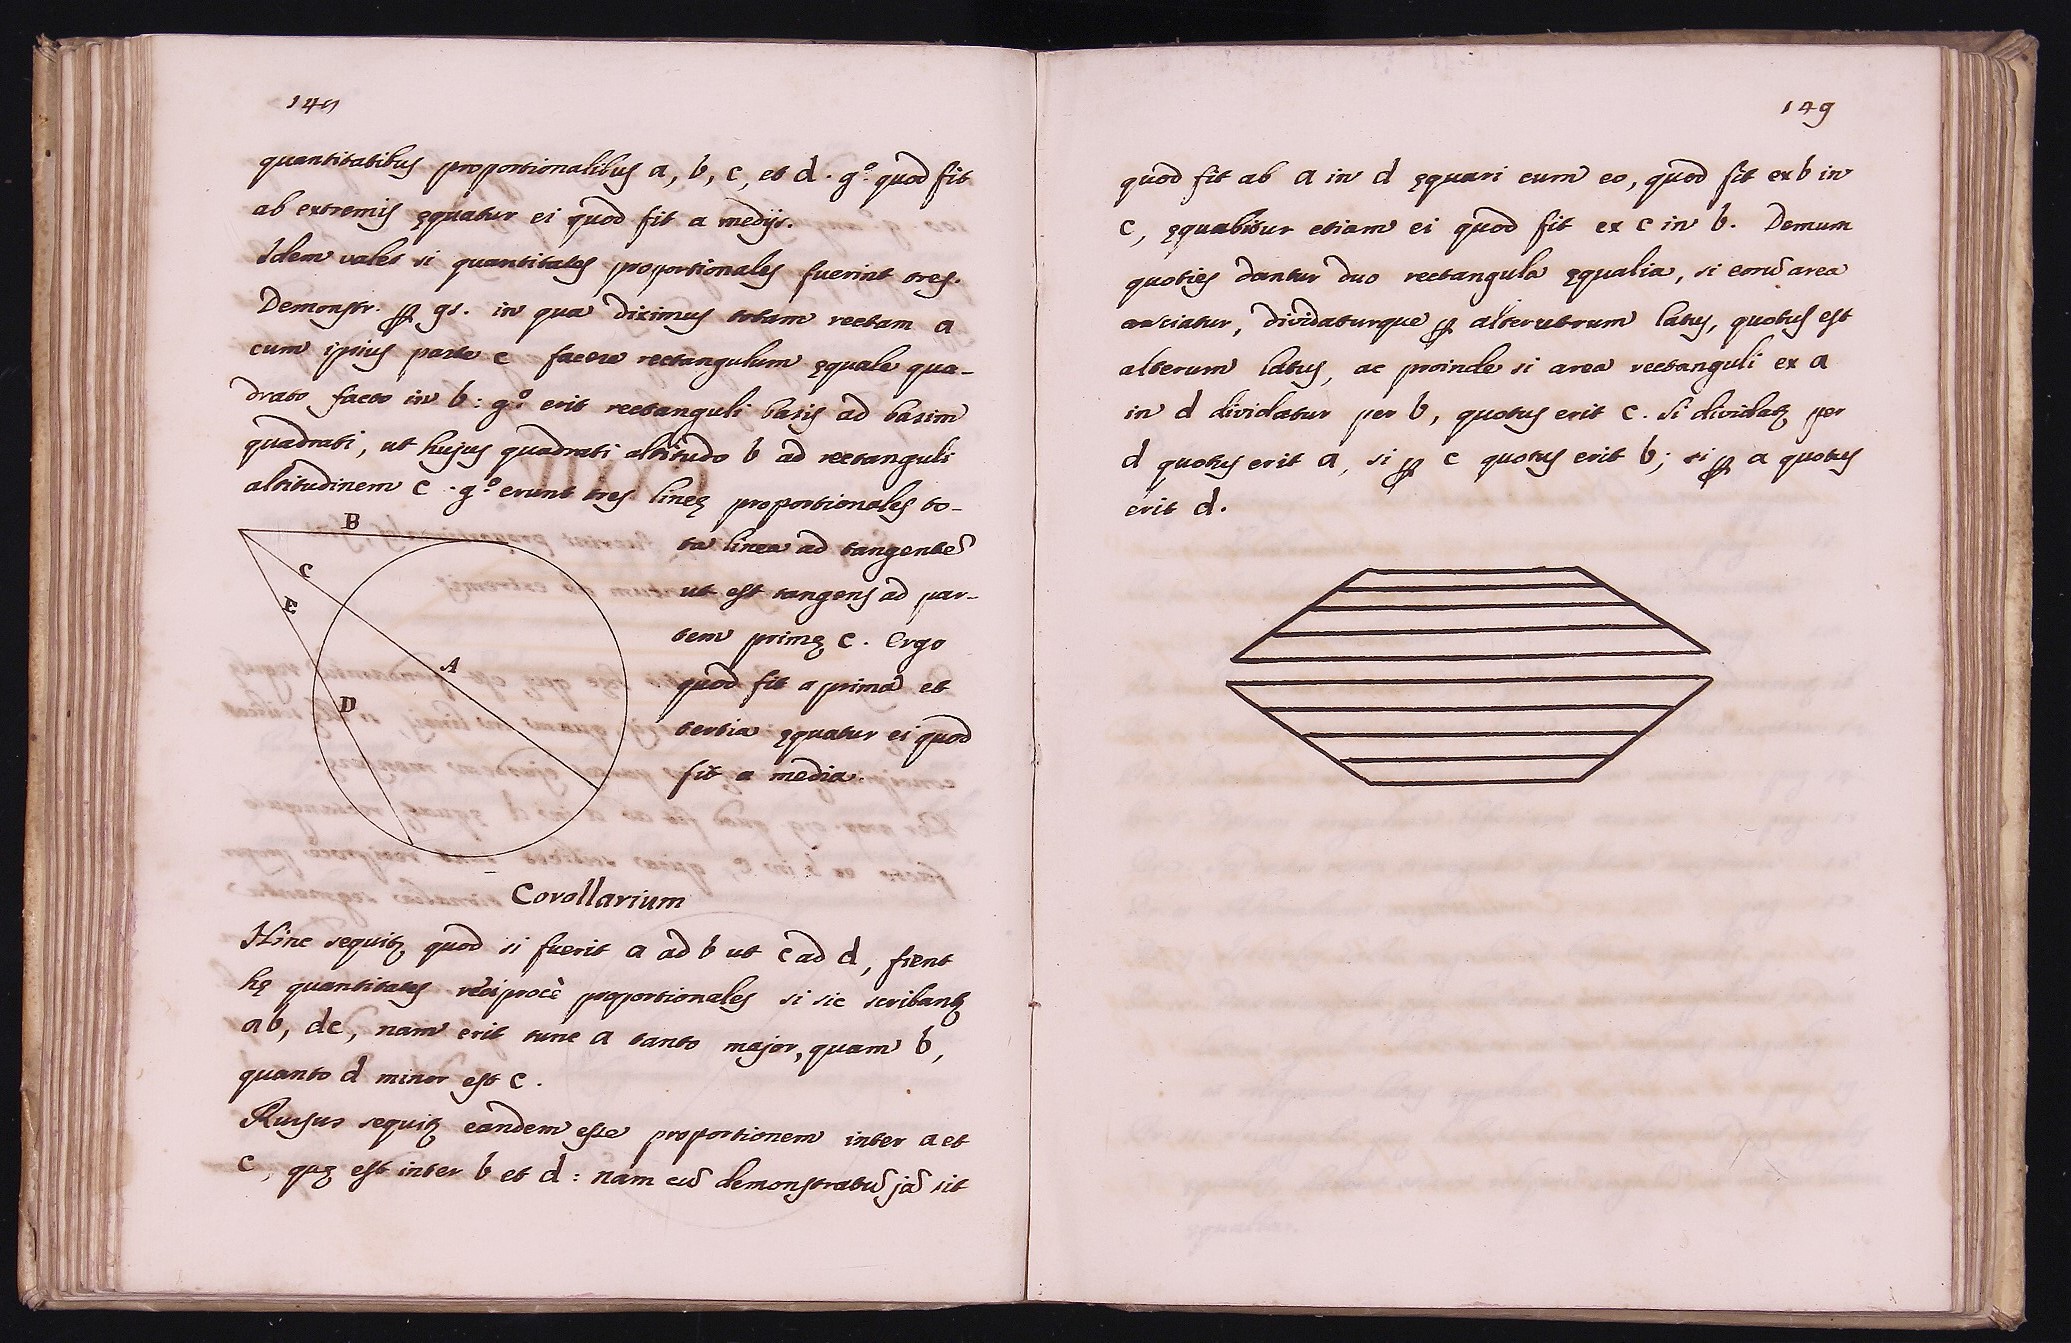 148
quantitatibus proportionalibus a, b, c, et d. gº. quod fit
ab extremis ęquatur ei quod fit a medijs.
Idem valet si quantitates proportionales fuerint tres.
Demonstr. ꝑ 91. in qua diximus totam rectam a
cum ipsius parte c facere rectangulum ęquale qua-
drato facto in b: gº. erit rectanguli basis ad basim
quadrati, ut hujus quadrati altitudo b ad rectanguli
altitudinem c. gº. erunt tres lineę proportionales to-
ta linea ad tangentē
ut est tangens ad par-
tem primę c. Ergo
quod fit a prima et
tertia ęquatur ei quod
fit a media.
B
C
E
A
D
Corollarium
Hinc sequitꝫ quod si fuerit a ad b ut c ad d, fient
hę quantitates reciprocè proportionales si sic scribantꝫ
ab, dc, nam erit tunc a tanto major, quam b,
quanto d minor est c.
Rursus sequitꝫ eandem esse proportionem inter a et
c, quę est inter b et d: nam cū demonstratū jā sit
149
quod fit ab a in d ęquari cum eo, quod fit ex b in
c, ęquabitur etiam ei quod fit ex c in b. Demum
quoties dantur duo rectangula ęqualia, si eorū area
sciatur, dividaturque ꝑ alterutrum latus, quotus est
alterum latus, ac proinde si area rectanguli ex a
in d dividatur per b, quotus erit c. Si dividatꝫ per
d quotus erit a, si ꝑ c quotus erit b; si ꝑ a quotus
erit d.